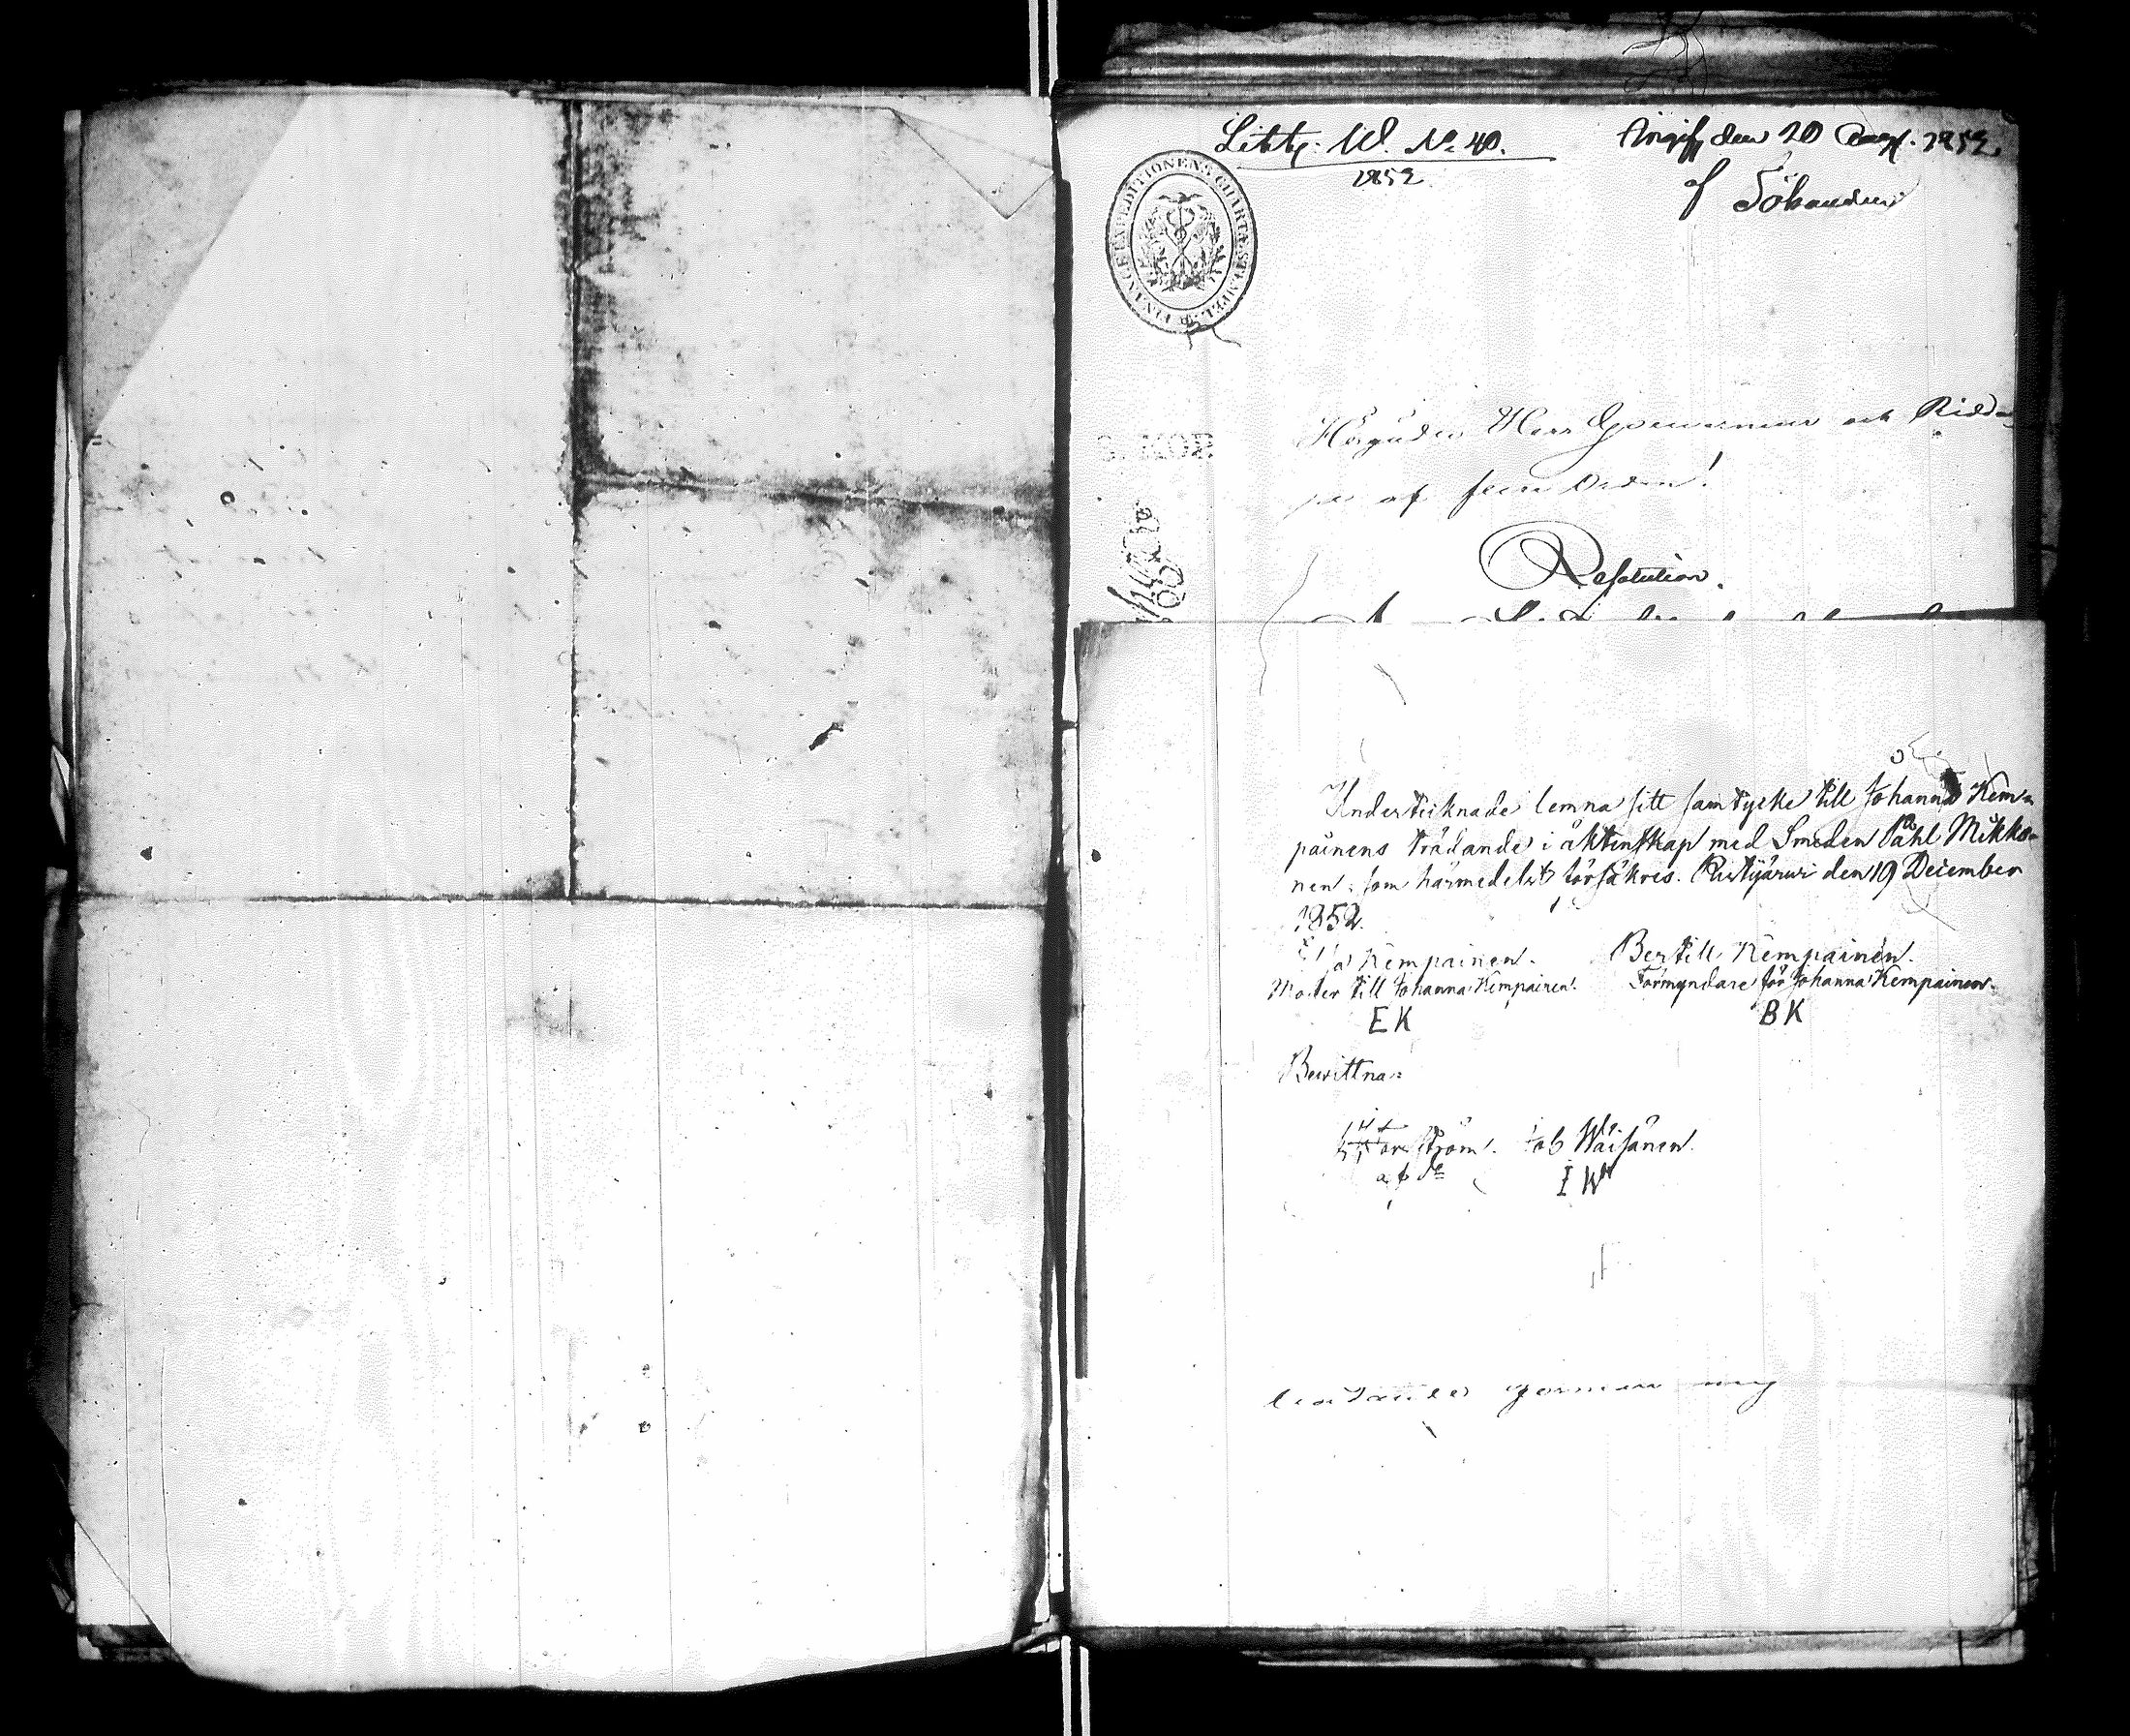 Litt. W. No 40.
1852.
Ingif. den 20 Aug. 1852.
af Sökanden
FINANCE EXPEDITIONENS CHARTÆ STÆMPEL
KOP
Högädle Herr Gouverneur och Ridda
re af flera Orden!
Resolution.
Undertecknade lemna sitt samtycke till Johanna Kem-
painens trädande i äktenskap med Smeden Påhl Mikko-
nen, som härmedelst försäkres. Ristijärwi den 19 December
1852.
Kempainen. Bertill Kempainen.
Moder till Johanna Kempainen. Förmyndare för Johanna Kempainen.
E K B K
Bewittna:
ström. Job Wäisänen.
I W
genom mig